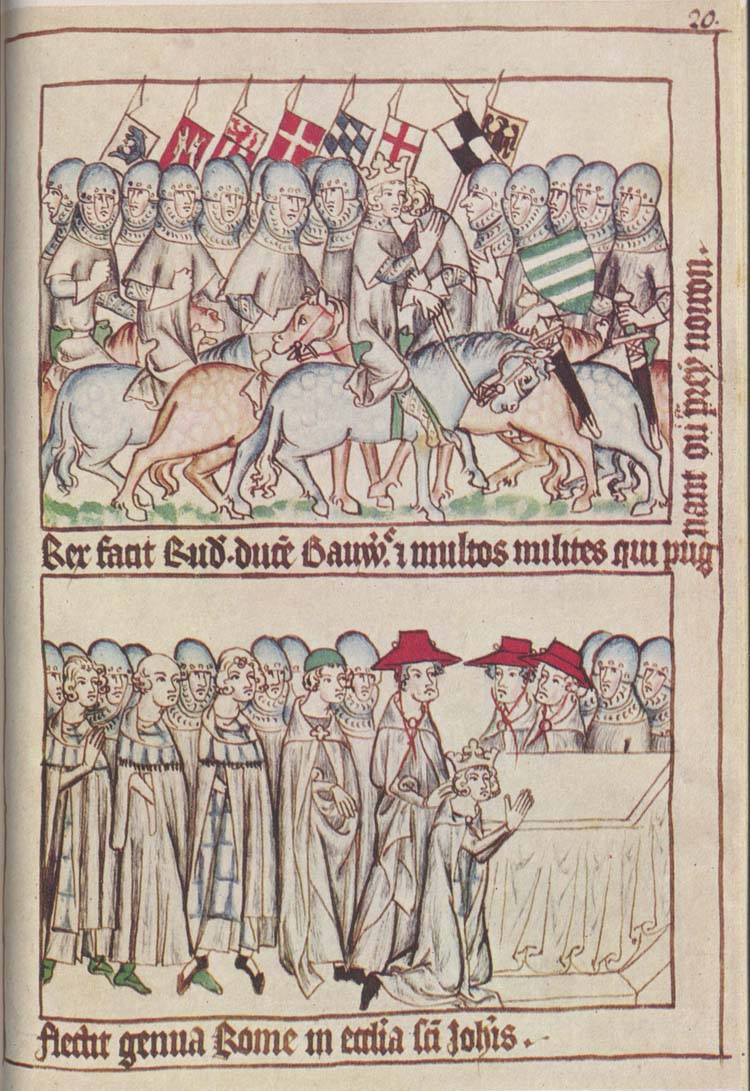 20.
Rex facit Rud̄. ducē Bauw̄. ⁊ multos milites qui pug
nant
flectit genua Rome in ecclīa scī Joħis.